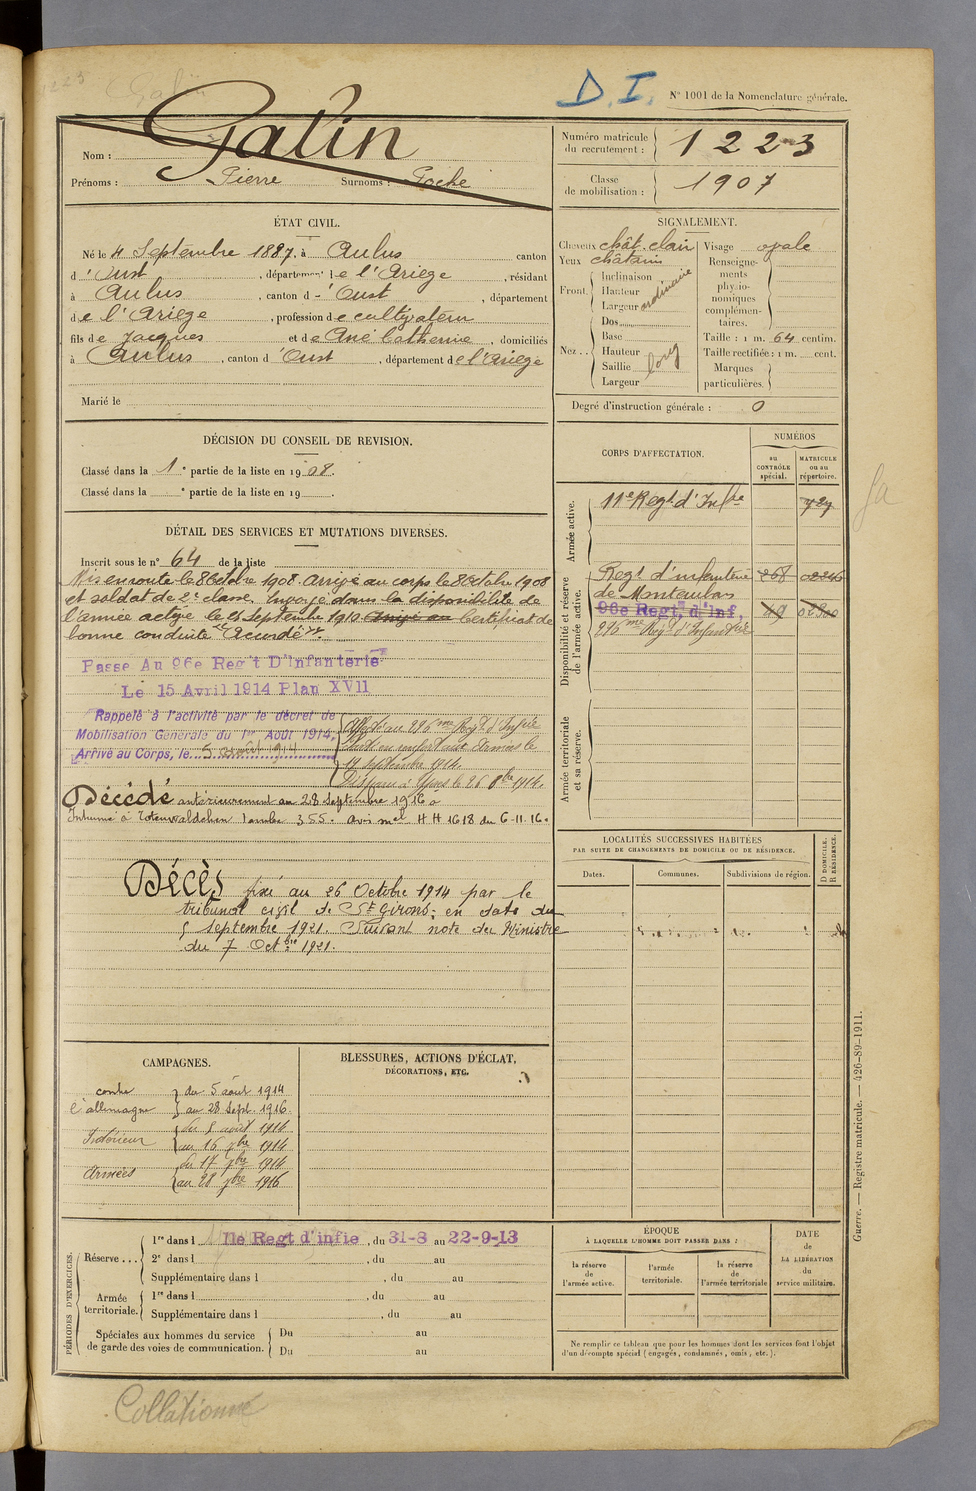 D. I.
N° 1001 de la Nomenclature générale.
Nom : Galin
Prénoms : Pierre Surnoms : Poche
Numéro matricule du recrutement : 1223
Classe de mobilisation : 1907
ÉTAT CIVIL.
Né le 4 Septembre 1887, à Aulus canton
d'Oust, département de l'Ariège, résidant
à Aulus, canton d'Oust, département
de l'Ariège, profession de cultivateur
fils de Jacques et de Ané Catherine, domiciliés
à Aulus, canton d'Oust, département de l'Ariège
Marié le
SIGNALEMENT.
Cheveux chât. clair
Yeux châtains
Front. Inclinaison
Hauteur
Largeur ordinaire
Nez .. Dos
Base
Hauteur long
Saillie
Largeur
Visage ovale
Renseignements physionomiques complémentaires.
Taille : 1 m. 64 centim.
Taille rectifiée : 1 m. cent.
Marques particulières.
Degré d'instruction générale : 0
DÉCISION DU CONSEIL DE REVISION.
Classé dans la 1e partie de la liste en 1908.
Classé dans la e partie de la liste en 19 .
DÉTAIL DES SERVICES ET MUTATIONS DIVERSES.
Inscrit sous le n° 64 de la liste
Mis en route le 8 Octobre 1908. Arrivé au corps le 8 Octobre 1908
et soldat de 2e classe. Envoyé dans la disponibilité de
l'armée active le 25 Septembre 1910. Certificat de
bonne conduite "Accordé".
Passe Au 96e Reg't D'Infanterie
Le 15 Avril 1914 Plan XVII
Rappelé à l'activité par le décret de
Mobilisation Générale du 1er Août 1914,
Arrivé au Corps, le 5 août 1914
Affecté au 296me Regt d'Infrie
Disparu à Ypres le 26 8bre 1914.
Décédé antérieurement au 28 Septembre 1916
Inhumé à Totenwäldchen tombe 355. avis mel HH 1618 du 6-11-16.
Décès fixé au 26 Octobre 1914 par le
tribunal civil de St Girons, en date du
5 Septembre 1921. Suivant note du Ministre
du 7 Octbre 1921.
CORPS D'AFFECTATION.
NUMÉROS
au CONTRÔLE spécial.
MATRICULE ou au répertoire.
Armée active.
11e Regt d'Infie 727
Disponibilité et réserve de l'armée active.
Regt d'infanterie
de Montauban
96e Regt d'Inf,
296me Regt d'Infanterie
Armée territoriale et sa réserve.
LOCALITÉS SUCCESSIVES HABITÉES
PAR SUITE DE CHANGEMENTS DE DOMICILE OU DE RÉSIDENCE.
Dates.
Communes.
Subdivisions de région.
D DOMICILE.
R RÉSIDENCE.
CAMPAGNES.
contre l'allemagne du 5 août 1914
au 28 Sept. 1916.
Intérieur du 5 août 1914
au 16 7bre 1914
Armées du 17 7bre 1914
au 28 7bre 1916
BLESSURES, ACTIONS D'ÉCLAT,
DÉCORATIONS, ETC.
PÉRIODES D'EXERCICES.
Réserve ... 1re dans l 11e Regt d'infie, du 31-8 au 22-9-13
2e dans l , du au
Supplémentaire dans l , du au
Armée territoriale. 1re dans l , du au
Supplémentaire dans l , du au
Spéciales aux hommes du service de garde des voies de communication. Du au
Du au
ÉPOQUE
À LAQUELLE L'HOMME DOIT PASSER DANS :
la réserve de l'armée active.
l'armée territoriale.
la réserve de l'armée territoriale
DATE de LA LIBÉRATION du service militaire.
Ne remplir ce tableau que pour les hommes dont les services font l'objet
d'un décompte spécial (engagés, condamnés, omis, etc.).
Guerre. — Registre matricule. — 426-89-1911.
Collationné